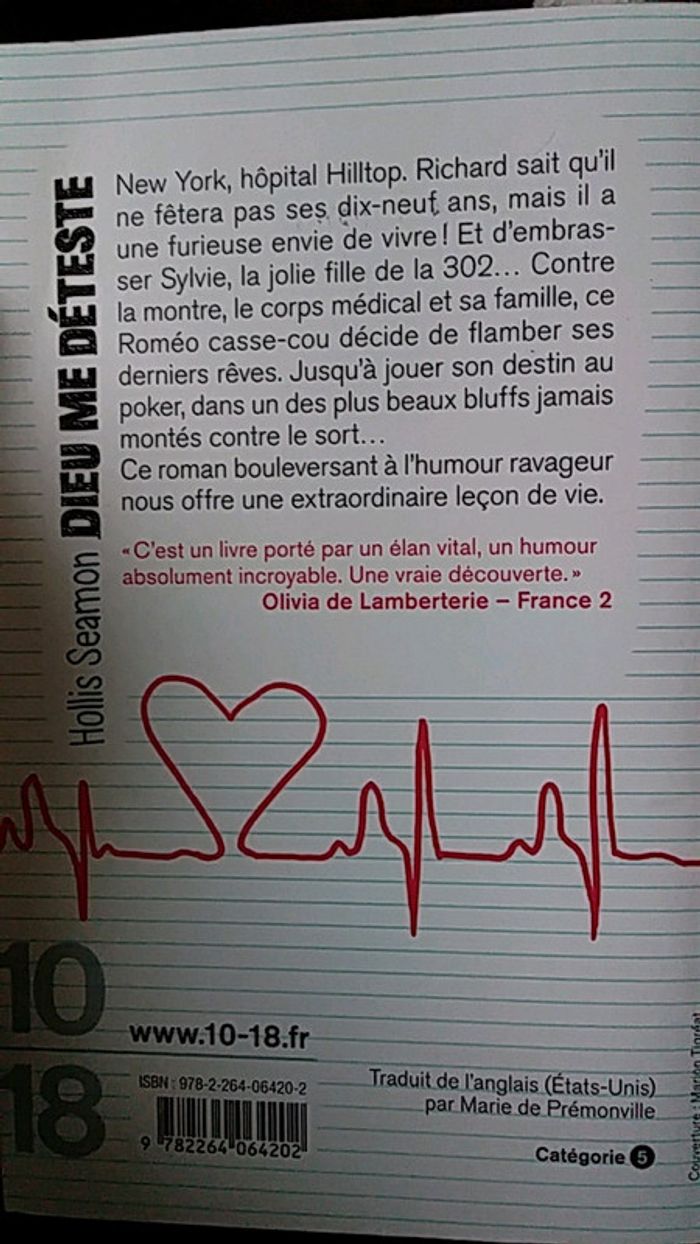 Hollis Seamon DIEU ME DÉTESTE
New York, hôpital Hilltop. Richard sait qu'il
ne fêtera pas ses dix-neuf ans, mais il a
une furieuse envie de vivre ! Et d'embras-
ser Sylvie, la jolie fille de la 302... Contre
la montre, le corps médical et sa famille, ce
Roméo casse-cou décide de flamber ses
derniers rêves. Jusqu'à jouer son destin au
poker, dans un des plus beaux bluffs jamais
montés contre le sort...
Ce roman bouleversant à l'humour ravageur
nous offre une extraordinaire leçon de vie.
« C'est un livre porté par un élan vital, un humour
absolument incroyable. Une vraie découverte. »
Olivia de Lamberterie – France 2
10
18
www.10-18.fr
ISBN : 978-2-264-06420-2
9 782264 064202
Traduit de l'anglais (États-Unis)
par Marie de Prémonville
Catégorie 5
Couverture :